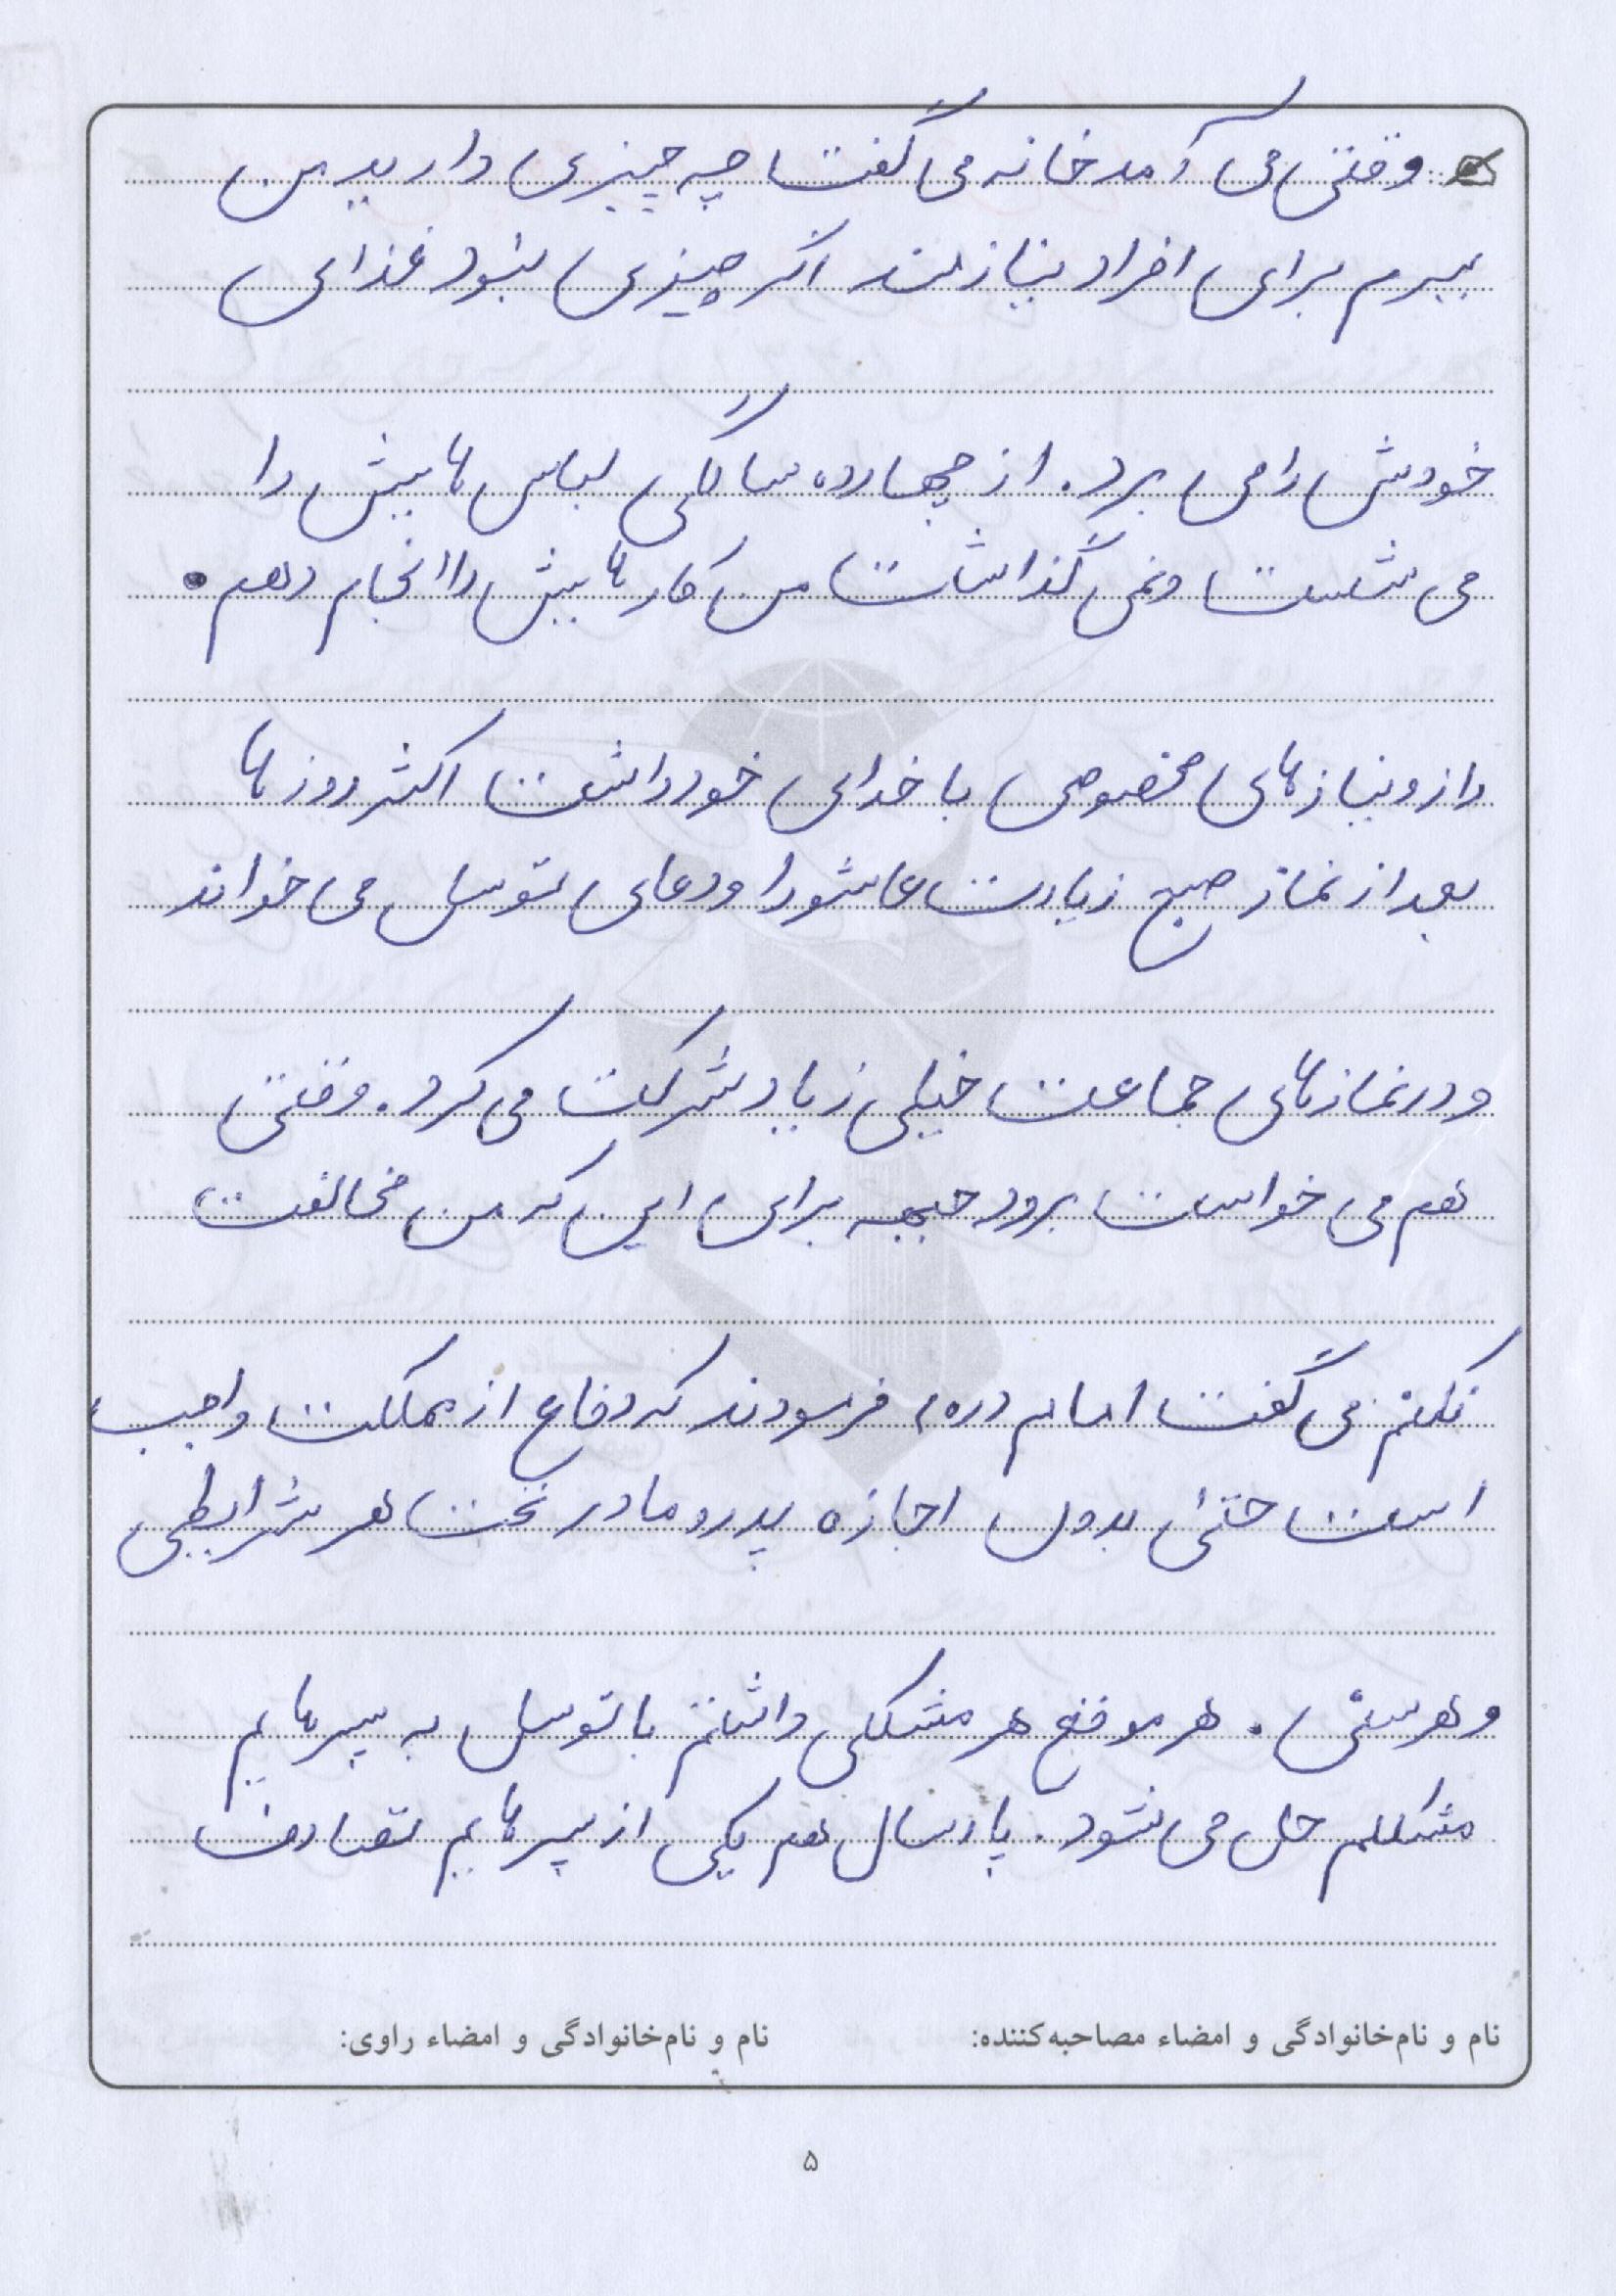 وقتی می آمد خانه می گفت چه چیزی دارید من
ببرم برای افراد نیازمند اگر چیزی نبود غذای
خودش را می برد. از چهارده سالگی لباس هایش را
می شست و نمی گذاشت من کارهایش را انجام دهم.
راز و نیازهای مخصوصی با خدای خود داشت اکثر روزها
بعد از نماز صبح زیارت عاشورا و دعای توسل می خواند
و در نمازهای جماعت خیلی زیاد شرکت می کرد. وقتی
هم می خواست برود جبهه برای این که من مخالفت
نکنم می گفت امام (ره) فرمودند که دفاع از مملکت واجب
است حتی بدون اجازه پدر و مادر تحت هر شرایطی
و هر سنی. هر موقع هر مشکلی داشتم با توسل به پسرهایم
مشکلم حل می شود. پارسال هم یکی از پسرهایم تصادف
نام و نام‌خانوادگی و امضاء مصاحبه‌کننده: نام و نام‌خانوادگی و امضاء راوی:
۵